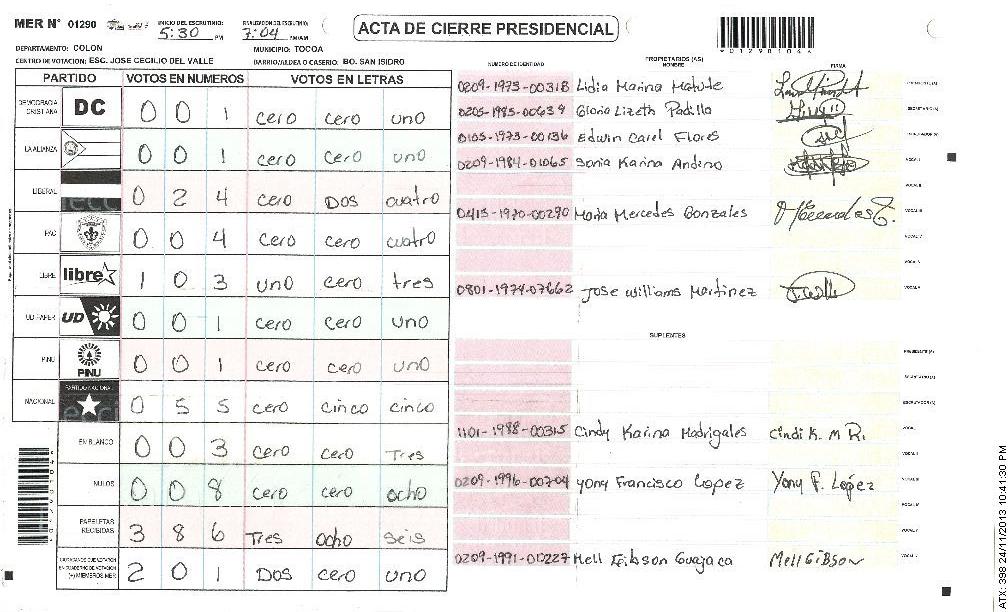 MER N° 01290
INICIO DEL ESCRUTINIO: 5:30 PM
FINALIZACION DEL ESCRUTINIO: 7:04 PM/AM
ACTA DE CIERRE PRESIDENCIAL
*01290104*
DEPARTAMENTO: COLON
MUNICIPIO: TOCOA
CENTRO DE VOTACION: ESC. JOSE CECILIO DEL VALLE
BARRIO/ALDEA O CASERIO: BO. SAN ISIDRO
PARTIDO VOTOS EN NUMEROS VOTOS EN LETRAS
DEMOCRACIA CRISTIANA DC 0 0 1 cero cero uno
LA ALIANZA 0 0 1 cero cero uno
LIBERAL 0 2 4 cero DOS cuatro
PAC 0 0 4 cero cero cuatro
LIBRE libre 1 0 3 uno cero tres
UD FAPER UD 0 0 1 cero cero uno
PINU PINU 0 0 1 cero cero uno
NACIONAL PARTIDO NACIONAL 0 5 5 cero cinco cinco
EN BLANCO 0 0 3 cero cero Tres
NULOS 0 0 8 cero cero ocho
PAPELETAS RECIBIDAS 3 8 6 Tres ocho seis
CIUDADANOS QUE VOTARON EN CUADERNO DE VOTACION (+) MIEMBROS MER 2 0 1 DOS cero uno
NUMERO DE IDENTIDAD
PROPIETARIOS (AS)
NOMBRE
FIRMA
0209-1975-00318 Lidia Marina Matute
0205-1985-00639 Gloria Lizeth Padilla SECRETARIO (A)
0105-1973-00136 Edwin Carel Flores ESCRUTADOR (A)
0209-1984-01065 Sonia Karina Andino VOCAL I
VOCAL II
0413-1970-00290 Maria Mercedes Gonzales VOCAL III
VOCAL IV
VOCAL V
0801-1974-07662 Jose Williams Martinez
SUPLENTES
PRESIDENTE (A)
SECRETARIO (A)
ESCRUTADOR (A)
1101-1988-00315 Cindy Karina Madrigales Cindi K. M R. VOCAL I
VOCAL II
0209-1996-00704 yony Francisco Lopez Yony F. López VOCAL III
VOCAL IV
VOCAL V
0209-1991-01227 Mell Gibson Guajaca Mell Gibson
ATX: 398 24/11/2013 10:41:30 PM